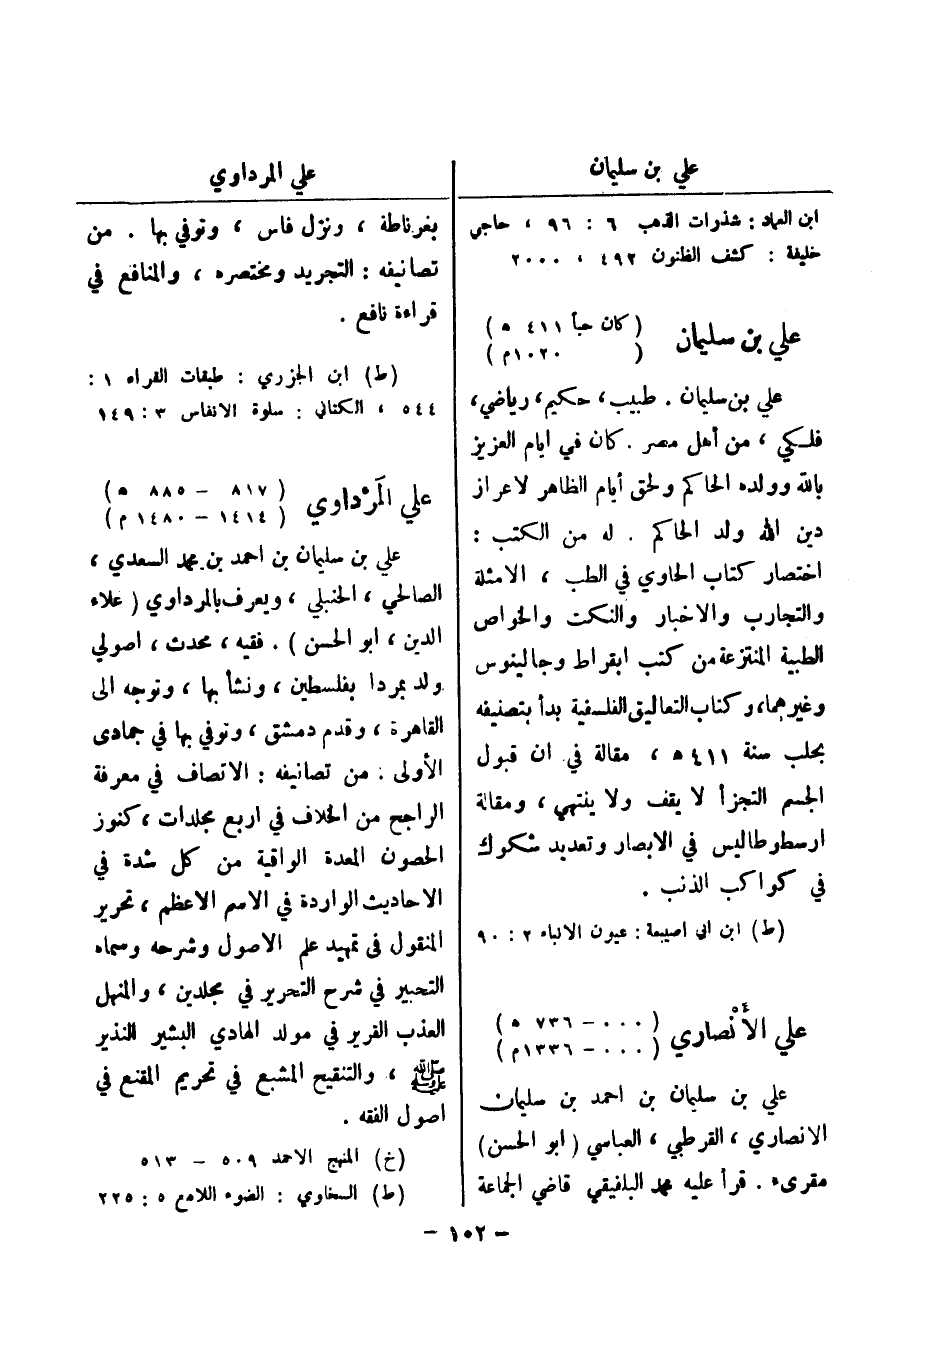 علي بن سليمان
ابن العماد : شذرات الذهب ٦ : ٩٦ ، حاجي
خليفة : كشف الظنون ٤٩٢ ، ٢٠٠٠
علي بن سليمان
( كان حياً ٤١١ ه )
( ١٠٢٠م )
علي بن سليمان . طبيب ، حكيم ، رياضي ،
فلكي ، من أهل مصر . كان في ايام العزيز
بالله وولده الحاكم ولحق أيام الظاهر لاعزاز
دين الله ولد الحاكم . له من الكتب :
اختصار كتاب الحاوي في الطب ، الامثلة
والتجارب والاخبار والنكت والخواص
الطبية المنتزعة من كتب ابقراط وجالينوس
وغيرهما، وكتاب التعاليق الفلسفية بدأ بتصنيفه
بحلب سنة ٤١١ ه ، مقالة في ان قبول
الجسم التجزأ لا يقف ولا ينتهي ، ومقالة
ارسطوطاليس في الابصار وتعديد شكوك
في كواكب الذنب .
(ط) ابن ابي اصيبعة : عيون الانباء ٢ : ٩٠
علي الأَنْصاري
( ٠٠٠ – ٧٣٦ ه )
( ٠٠٠ – ١٣٣٦م )
علي بن سليمان بن احمد بن سليمان
الانصاري ، القرطبي ، العباسي ( ابو الحسن )
مقرىء . قرأ عليه محمد البلفيقي قاضي الجماعة
علي المرداوي
بغرناطة ، ونزل فاس ، وتوفي بها . من
تصانيفه : التجريد ومختصره ، والمنافع في
قراءة نافع .
(ط) ابن الجزري : طبقات القراء ١ :
٥٤٤ ، الكتاني : سلوة الانفاس ٣ : ١٤٩
علي المَرْداوي
( ٨١٧ – ٨٨٥ ه )
( ١٤١٤ – ١٤٨٠ م )
علي بن سليمان بن احمد بن محمد السعدي ،
الصالحي ، الحنبلي ، ويعرف بالمرداوي ( علاء
الدين ، ابو الحسن ) . فقيه ، محدث ، اصولي
ولد بمردا بفلسطين ، ونشأ بها ، وتوجه الى
القاهرة ، وقدم دمشق ، وتوفي بها في جمادى
الأولى . من تصانيفه : الانصاف في معرفة
الراجح من الخلاف في اربع مجلدات ، كنوز
الحصون المعدة الواقية من كل شدة في
الاحاديث الواردة في الاسم الاعظم ، تحرير
المنقول في تمهيد علم الاصول وشرحه وسماه
التحبير في شرح التحرير في مجلدين ، والمنهل
العذب الغرير في مولد الهادي البشير النذير
ﷺ ، والتنقيح المشبع في تحريم المقنع في
اصول الفقه .
(خ) المنهج الاحمد ٥٠٩ – ٥١٣
(ط) السخاوي : الضوء اللامع ٥ : ٢٢٥
– ١٠٢ –